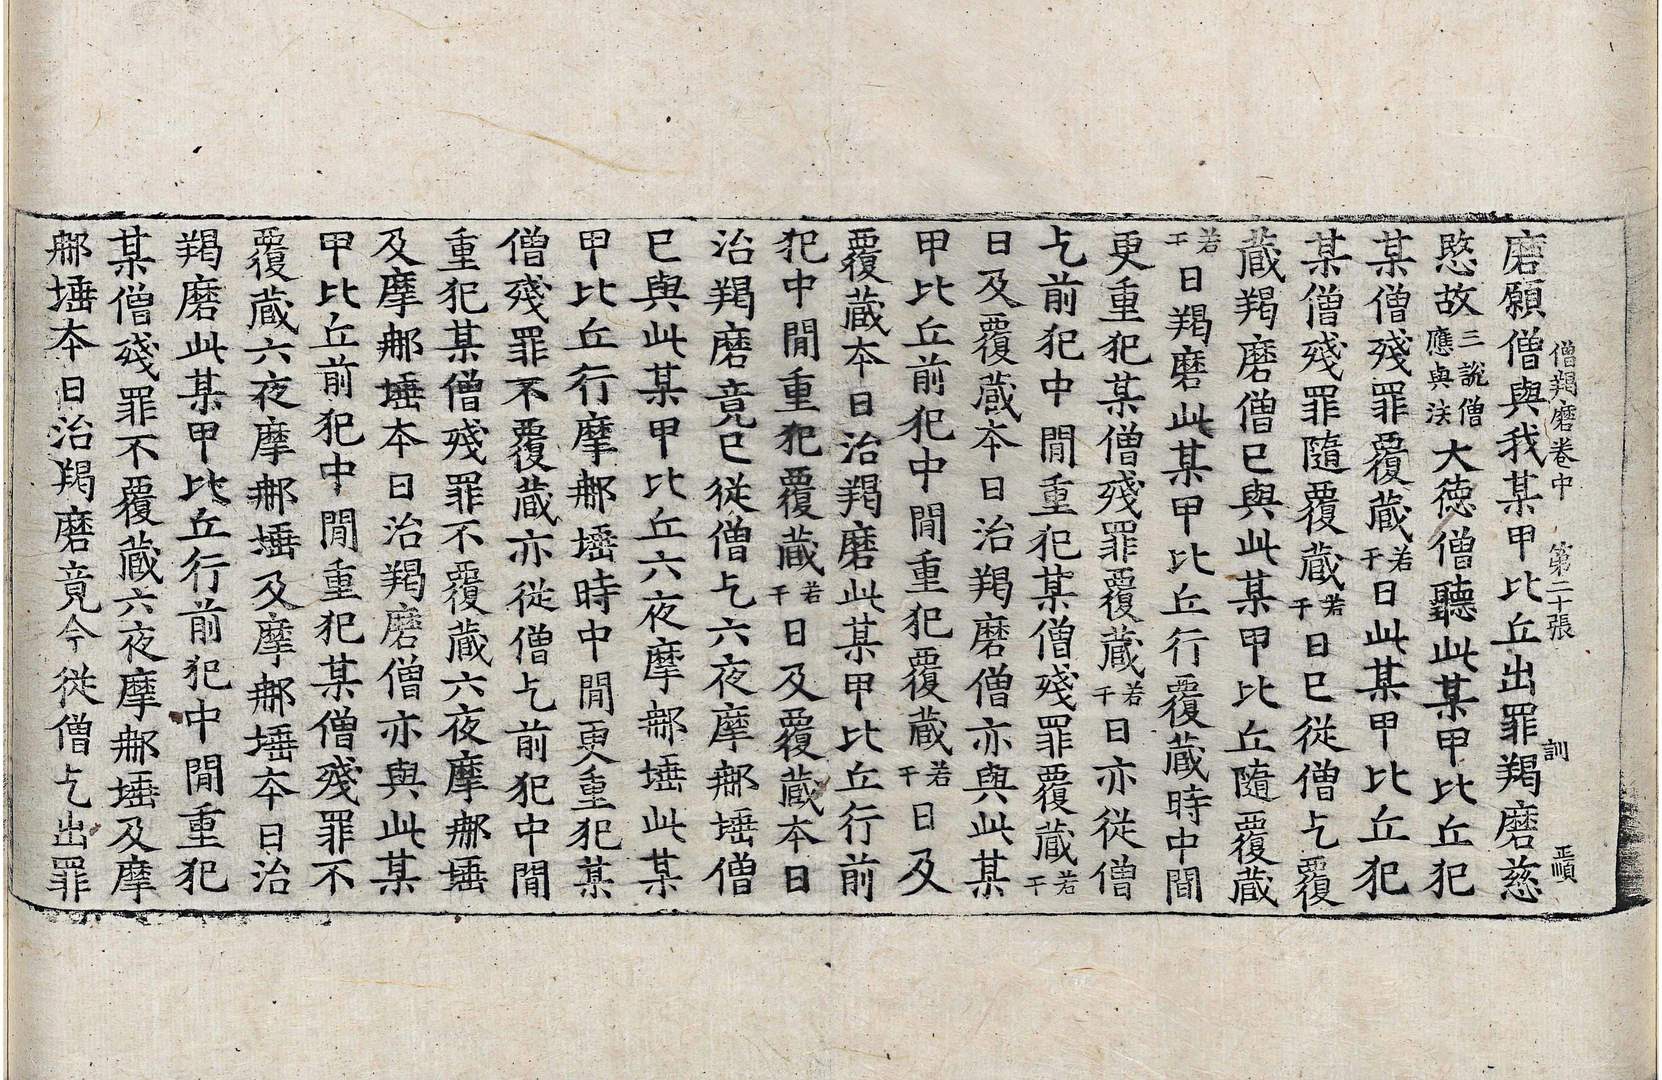 僧羯磨卷中 第二十張 訓 正順
磨願僧與我某甲比丘出罪羯磨慈
愍故三說僧應與法大德僧聽此某甲比丘犯
某僧殘罪覆藏若干日此某甲比丘犯
某僧殘罪隨覆藏若干日已從僧乞覆
藏羯磨僧已與此某甲比丘隨覆藏
若干日羯磨此某甲比丘行覆藏時中間
更重犯某僧殘罪覆藏若干日亦從僧
乞前犯中閒重犯某僧殘罪覆藏若干
日及覆藏本日治羯磨僧亦與此某
甲比丘前犯中閒重犯覆藏若干日及
覆藏本日治羯磨此某甲比丘行前
犯中閒重犯覆藏若干日及覆藏本日
治羯磨竟已從僧乞六夜摩郍埵僧
已與此某甲比丘六夜摩郍埵此某
甲比丘行摩郍埵時中閒更重犯某
僧殘罪不覆藏亦從僧乞前犯中閒
重犯某僧殘罪不覆藏六夜摩郍埵
及摩郍埵本日治羯磨僧亦與此某
甲比丘前犯中閒重犯某僧殘罪不
覆藏六夜摩郍埵及摩郍埵本日治
羯磨此某甲比丘行前犯中閒重犯
某僧殘罪不覆藏六夜摩郍埵及摩
郍埵本日治羯磨竟今從僧乞出罪